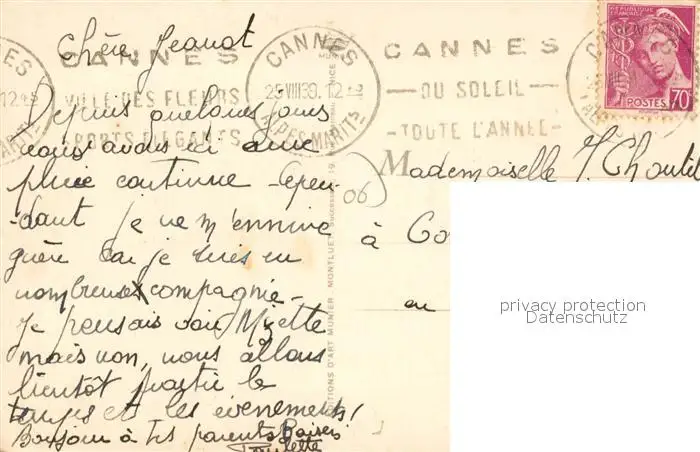 Chère Jeanot
CANNES
VILLE DES FLEURS
SPORTS ELEGANTS
CANNES
25 VIII 39. 12
ALPES MARIT
CANNES
OU SOLEIL
TOUTE L'ANNEE
REPUBLIQUE FRANÇAISE
POSTES 70
Depuis quelques jours
nous avons ici une
pluie continue - cepen-
dant je ne m'ennuie
guère car je suis en
nombreuse compagnie -
Je pensais voir Mizette
mais non, nous allons
bientôt partir le
temps et les évènements!
Bonjour à tes parents Baisers
Paulette
06
EDITIONS D'ART MUNIER MONTLUET Successeur
Mademoiselle J.
à Go
en
privacy protection
Datenschutz